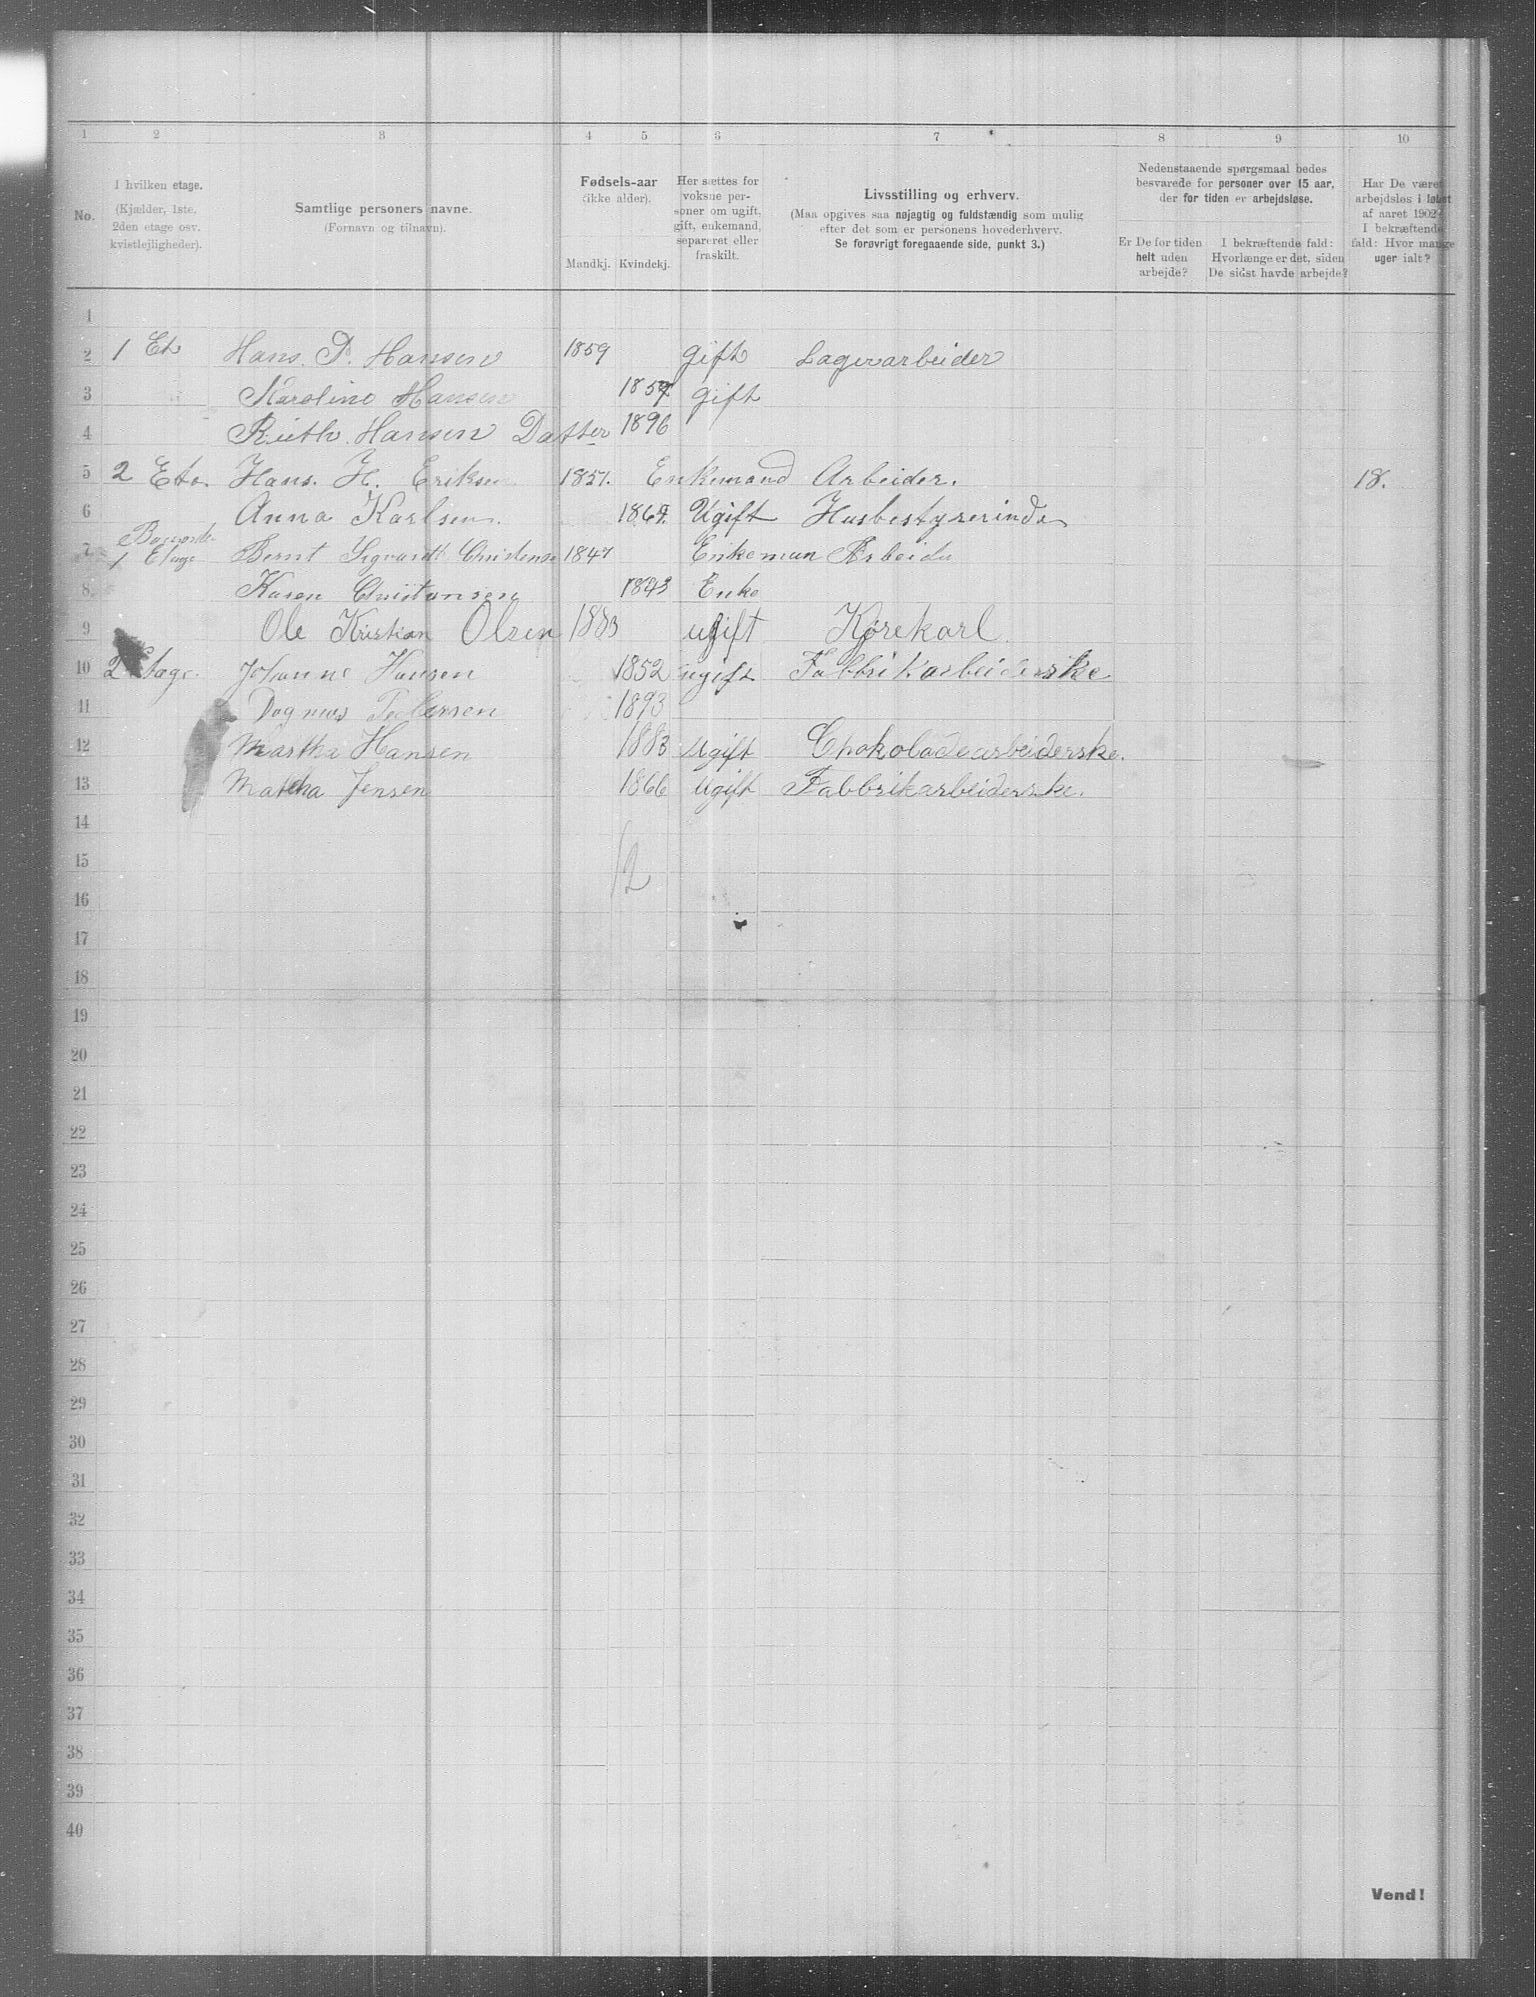 1 2 3 4 5 6 7 8 9 10
No.
I hvilken etage.
(Kjælder, 1ste,
2den etage osv.
kvistlejligheder).
Samtlige personers navne.
(Fornavn og tilnavn).
Fødsels-aar
(ikke alder).
Mandkj. Kvindekj.
Her sættes for
voksne per-
soner om ugift,
gift, enkemand,
separeret eller
fraskilt.
Livsstilling og erhverv.
(Maa opgives saa nøjagtig og fuldstændig som mulig
efter det som er personens hovederhverv.
Se forøvrigt foregaaende side, punkt 3.)
Nedenstaaende spørgsmaal bedes
besvarede for personer over 15 aar,
der for tiden er arbejdsløse.
Er De for tiden
helt uden
arbejde?
I bekræftende fald:
Hvorlænge er det, siden
De sidst havde arbejde?
Har De været
arbejdsløs i løbet
af aaret 1902?
I bekræftende
fald: Hvor mange
uger ialt?
1
2 1 Et. Hans. P. Hansen 1859 gift Lagerarbeider
3 Karoline Hansen gift
4 Ruth Hansen Datter 1896
5 2 Eta. Hans. H. Eriksen 1857. Enkemand Arbeider. 18.
6 Anna Karlsen. Ugift Husbestyrerinde
7 1 Etage Bernt Sigvardt Christense 1847 Enkeman Arbeider
8 Karen Christansen 1843 Enke
9 Ole Kristian Olsen 1883 ugift Kjørekarl.
10 2 Etage. Johanne Hansen 1852 ugift Fabbrikarbeiderske
11 Pedersen 1893
12 Martha Hansen 1883 Ugift Chokoladearbeiderske.
13 Jensen 1866 Ugift Fabbrikarbeiderske.
14
15
12
16
17
18
19
20
21
22
23
24
25
26
27
28
29
30
31
32
33
34
35
36
37
38
39
40
Vend!